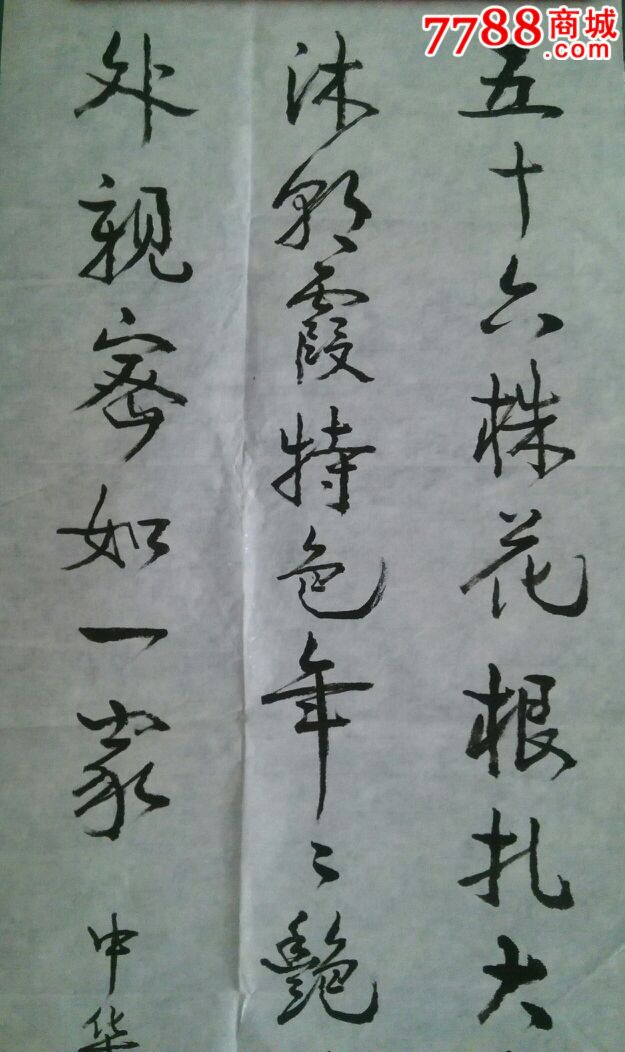 7788商城
.com
五十六株花根扎大
沐朝霞特色年々艳
外亲密如一家
中华